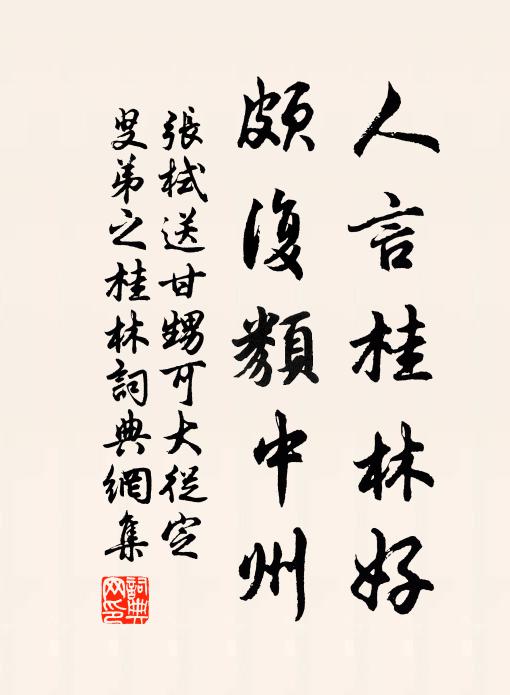 人言桂林好
頗復類中州
張栻送甘甥可大從定
叟弟之桂林詞典網集
詞典網印